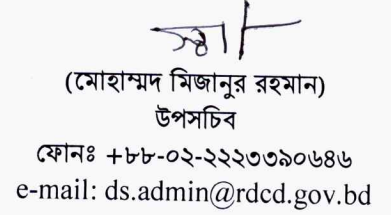 (মোহাম্মদ মিজানুর রহমান)
উপসচিব
ফোনঃ +৮৮-০২-২২২৩৩৯০৬৪৬
e-mail: ds.admin@rdcd.gov.bd